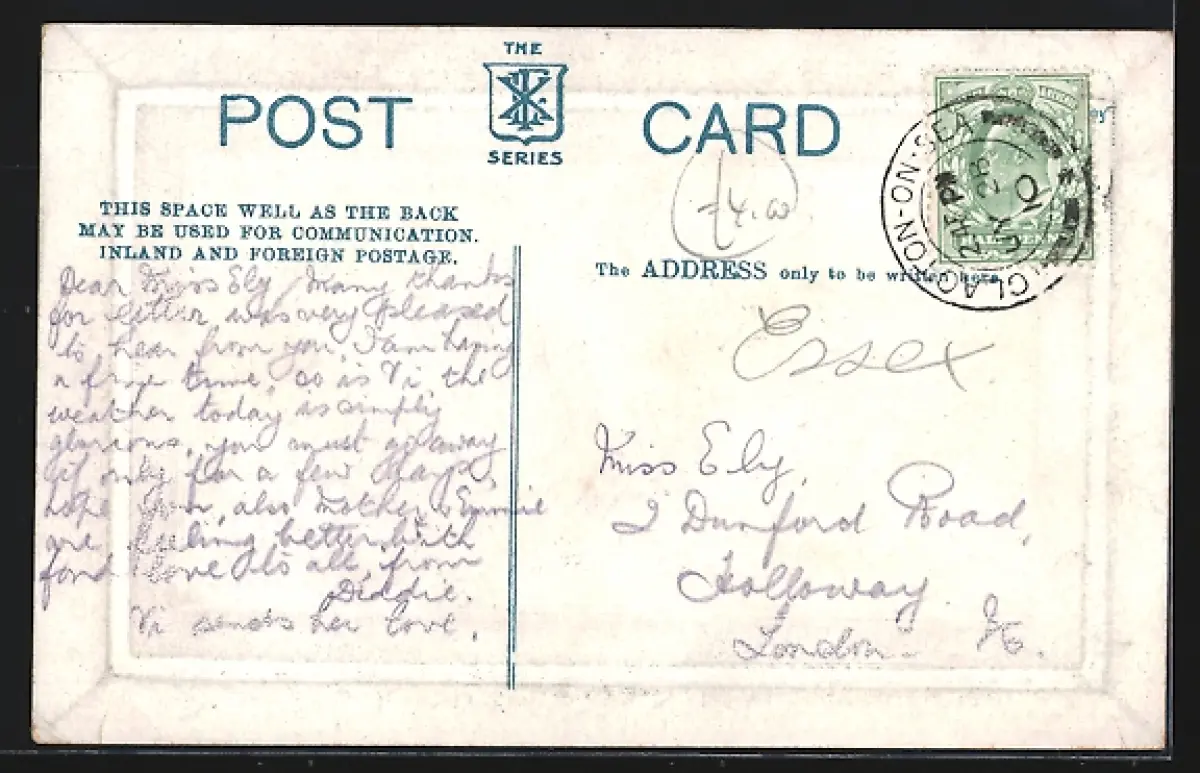 THE
POST CARD
SERIES
THIS SPACE WELL AS THE BACK
MAY BE USED FOR COMMUNICATION.
INLAND AND FOREIGN POSTAGE.
The ADDRESS only to be written here
CLACTON-ON-SEA
JY 28
10
£4.00
Essex
Dear Miss Ely, Many thanks
for letter was very pleased
to hear from you, I am having
a fine time, so is Vi the
weather today is simply
glorious, you must go away
if only for a few days,
hope you, also Mother & Emmie
are feeling better, with
fond love to all, from
Diddie.
Vi sends her love.
Miss Ely,
2 Dunford Road,
Holloway
London